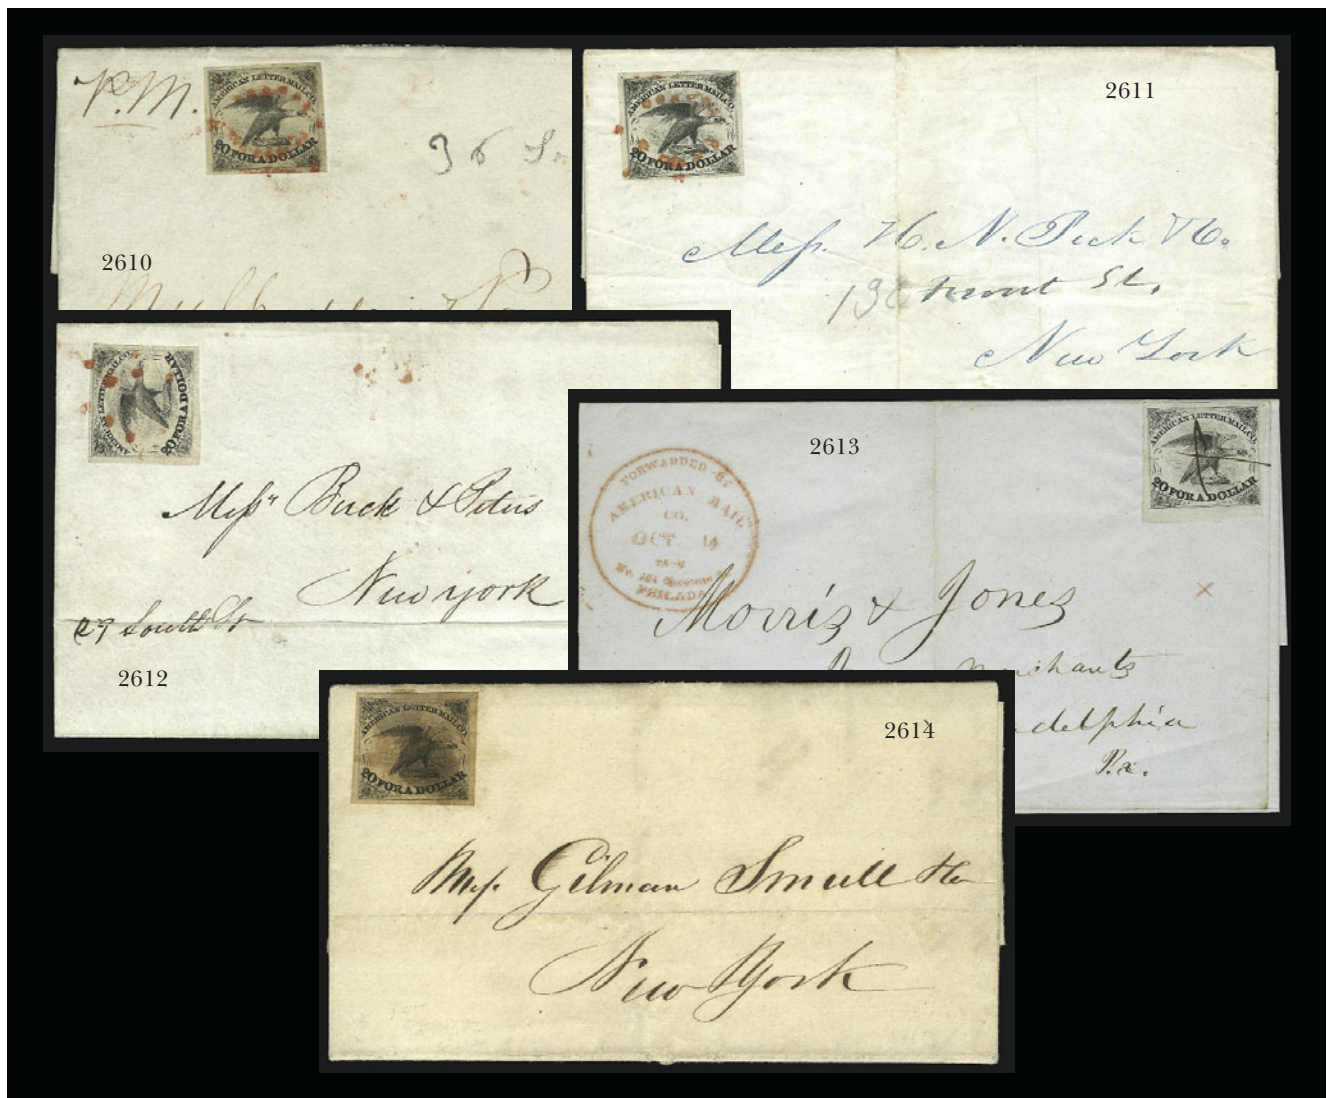 P.M.
AMERICAN LETTER MAIL CO.
20 FOR A DOLLAR
36
2610
AMERICAN LETTER MAIL CO.
20 FOR A DOLLAR
2611
Mess. H. N. Peck & Co.
Front St.
New York
AMERICAN LETTER MAIL CO.
20 FOR A DOLLAR
Messrs Buck & Peters
New york
29 South St
2612
FORWARDED BY
AMERICAN MAIL
CO.
OCT 14
PHILADA
2613
AMERICAN LETTER MAIL CO.
20 FOR A DOLLAR
Morris & Jones
delphia
Pa.
AMERICAN LETTER MAIL CO.
20 FOR A DOLLAR
2614
Mess. Gilman Small & Co
New York